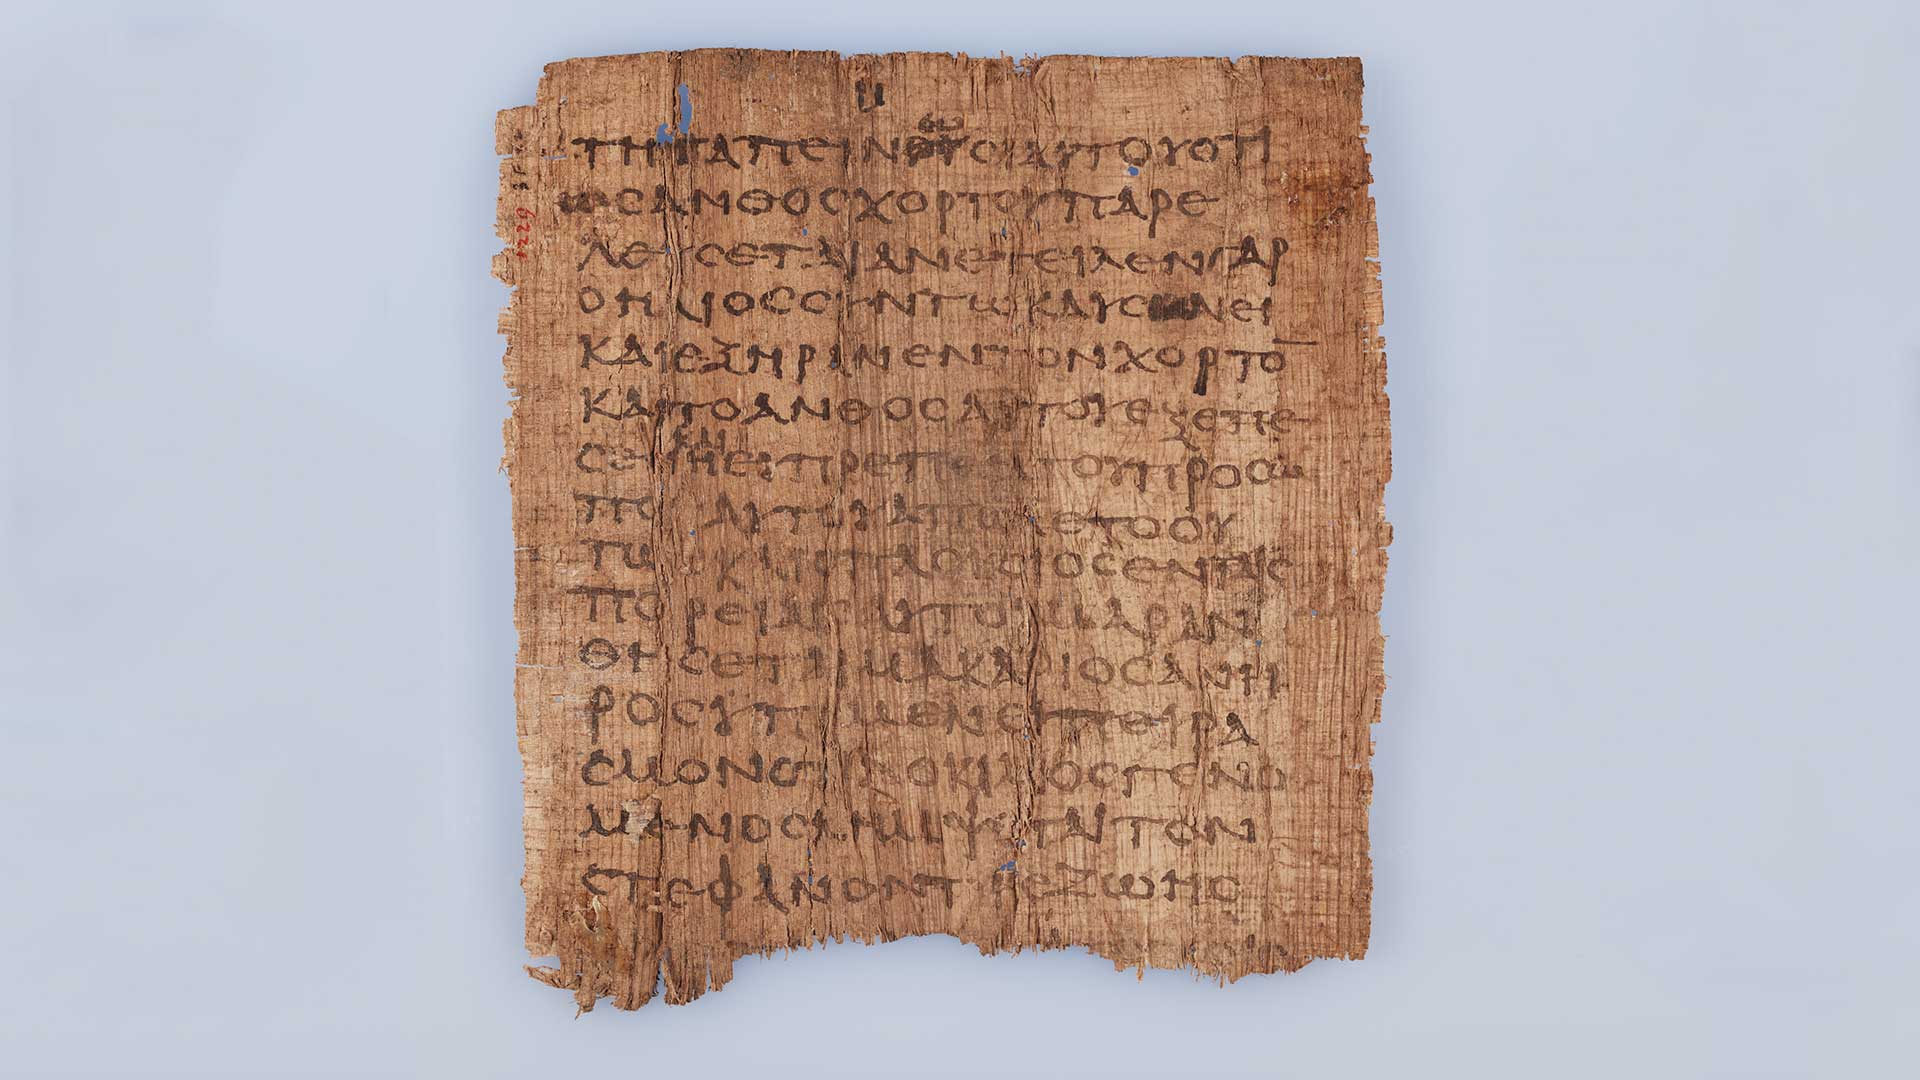 ιι
ΤΗΤΑΠΕΙΝΩϹΙΑΥΤΟΥΟΤΙ
ΩϹΑΝΘΟϹΧΟΡΤΟΥΠΑΡΕ
ΛΕΥϹΕΤΑΙΑΝΕΤΕΙΛΕΝΓΑΡ
ΟΗΛΙΟϹϹΥΝΤΩΚΑΥϹΩΝΕΙ
ΚΑΙΕΞΗΡΑΝΕΝΤΟΝΧΟΡΤΟ̅
ΚΑΙΤΟΑΝΘΟϹΑΥΤΟΥΕΞΕΠΕ
ϹΕΝΚΑΙΗΕΥΠΡΕΠΕΙΑΤΟΥΠΡΟϹΩ
ΠΟΥΑΥΤΟΥΑΠΟΛΕΤΟΟΥ
ΤΩϹΚΑΙΟΠΛΟΥϹΙΟϹΕΝΤΑΙϹ
ΠΟΡΕΙΑΙϹΑΥΤΟΥΜΑΡΑΝ
ΘΗϹΕΤΑΙΜΑΚΑΡΙΟϹΑΝΗ
ΡΟϹΥΠΟΜΕΝΕΙΠΕΙΡΑ
ϹΜΟΝΟΤΙΔΟΚΙΜΟϹΓΕΝΟ
ΜΕΝΟϹΛΗΜΨΕΤΑΙΤΟΝ
ϹΤΕΦΑΝΟΝΤΗϹΖΩΗϹΟ
1229